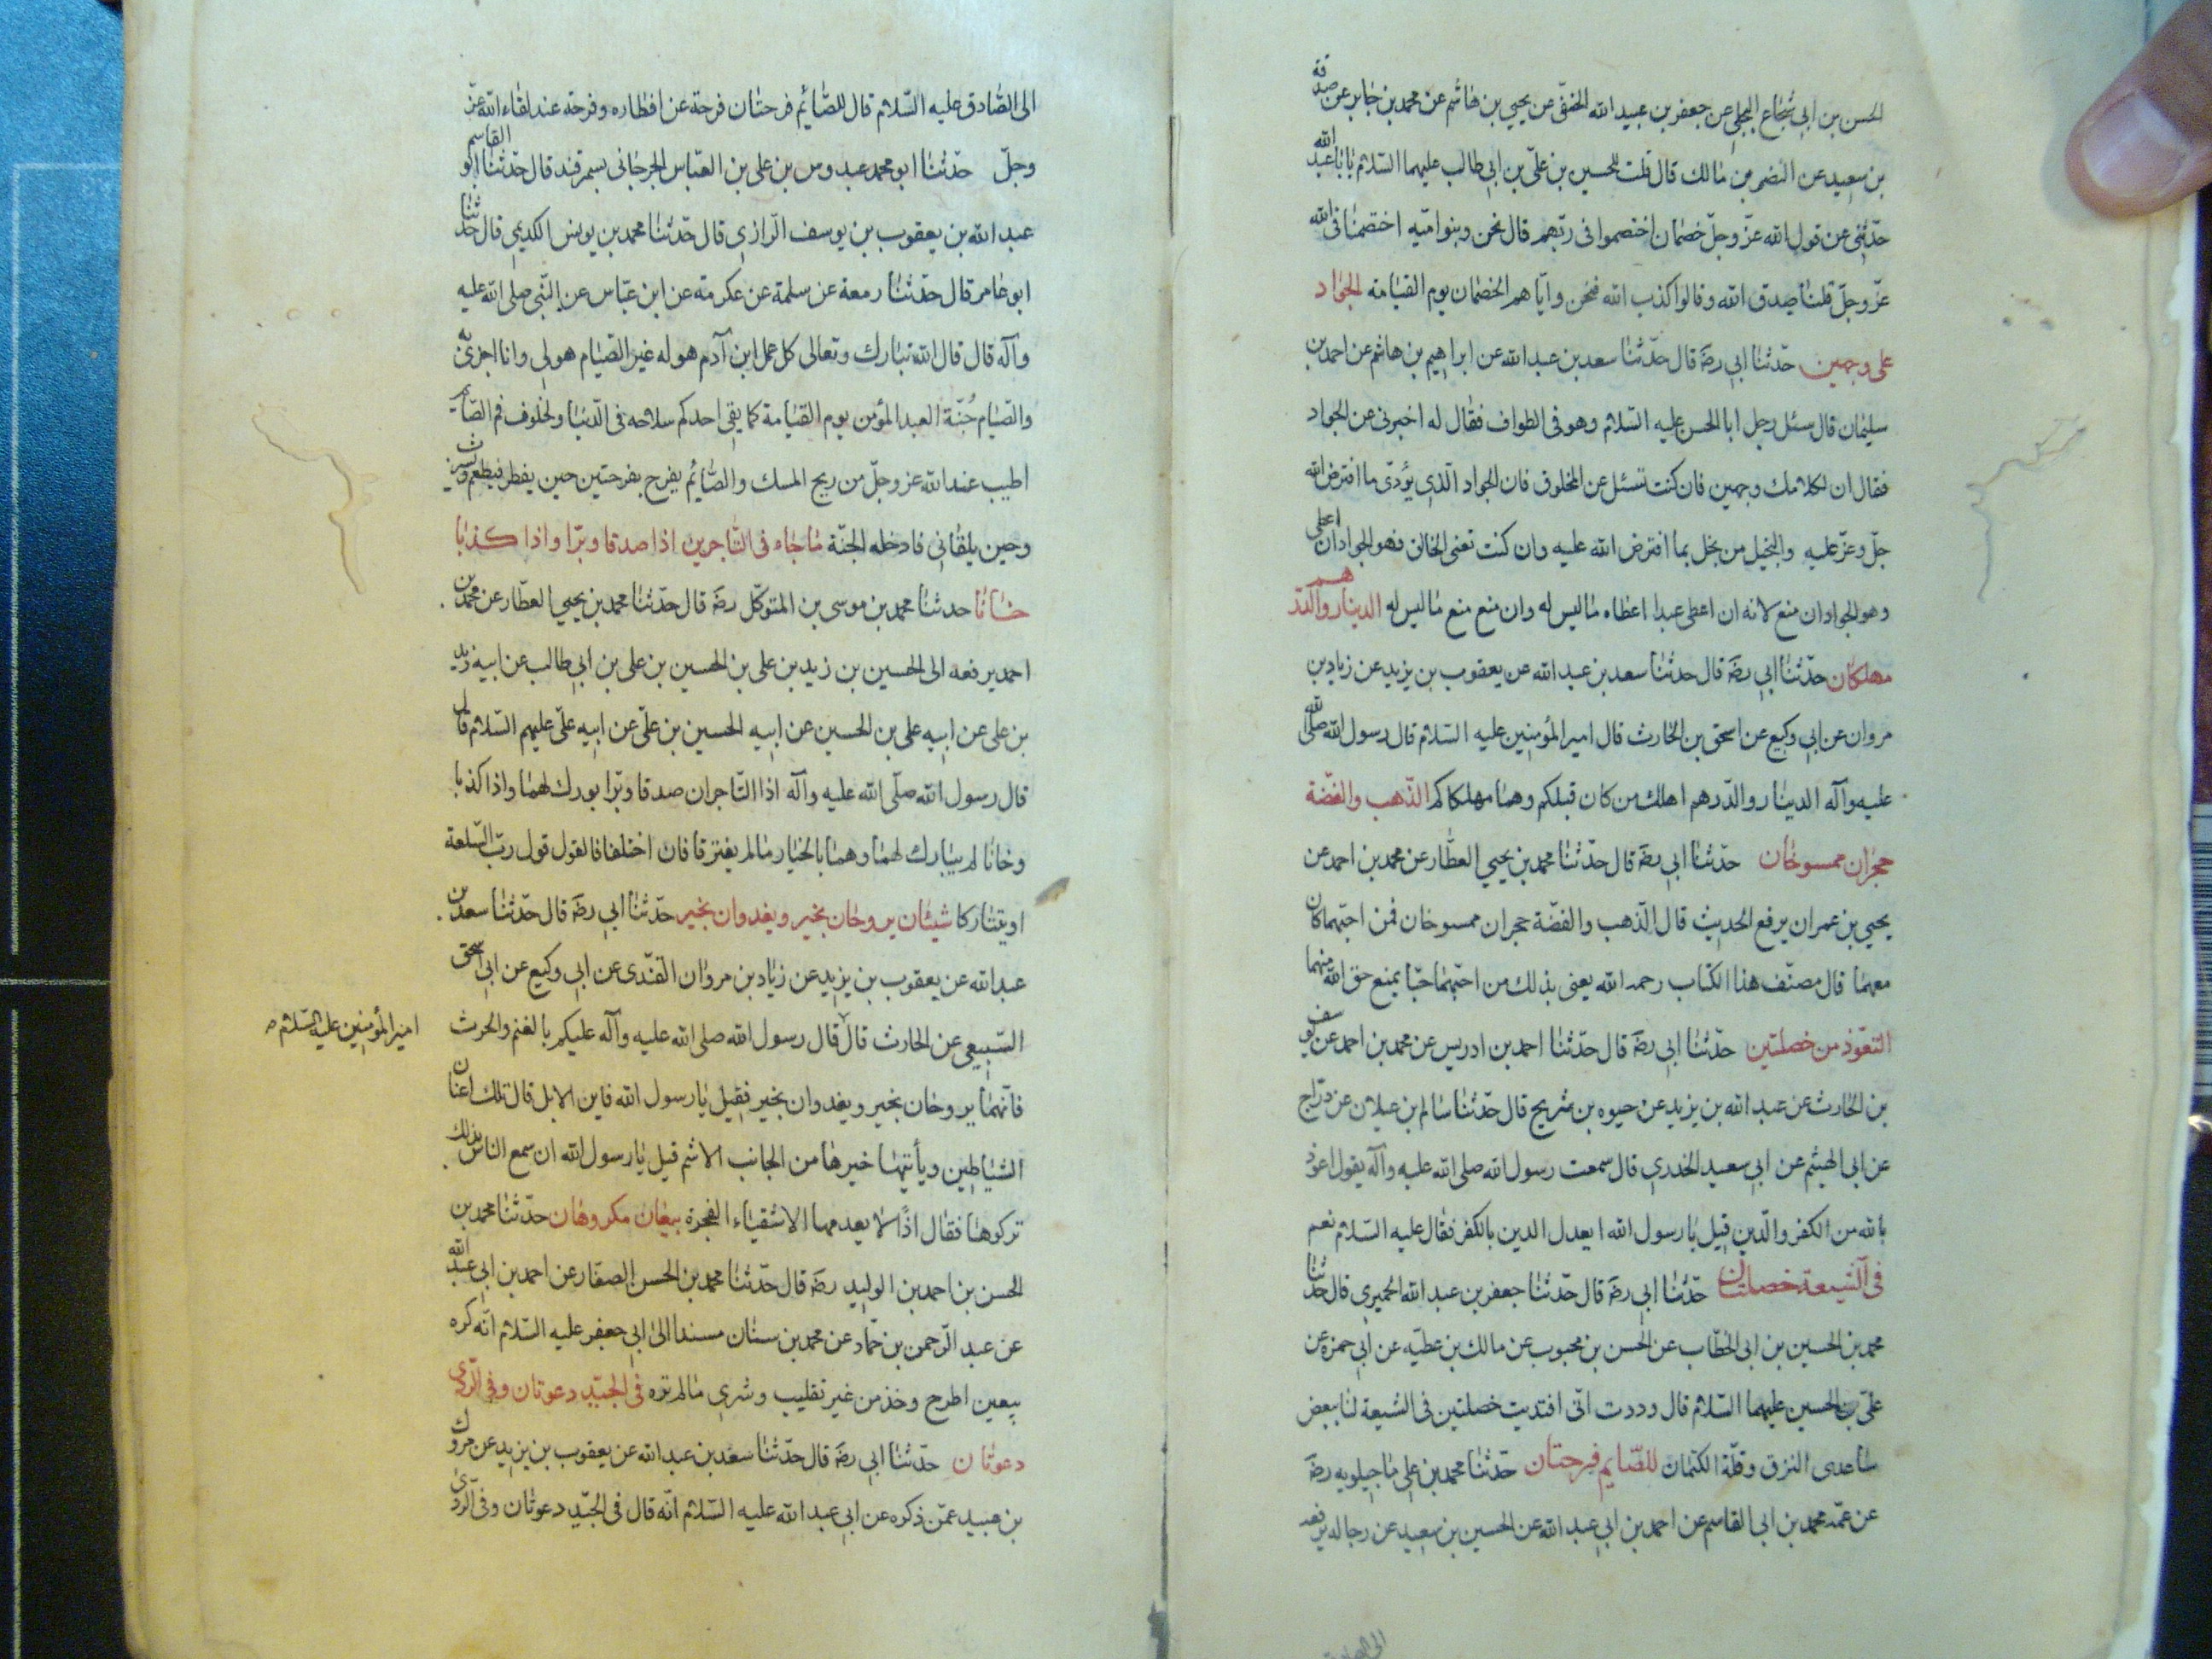 الحسن بن ابي شجاع البجلي عن جعفر بن عبيد الله الحنفي عن يحيي بن هاشم عن محمد بن جابر عن صدقة
بن سعيد عن النضر بن مالك قال قلت للحسين بن عليّ بن ابي طالب عليهما السّلام يا با عبد الله
حدّثني عن قول الله عزّ وجلّ خصمان اختصموا في ربّهم قال نحن وبنو اميّه اختصمنا في الله
عزّ وجلّ قلنا صدق الله وقالوا كذب الله فنحن وايّاهم الخصمان يوم القيامة الجواد
على وجهين حدّثنا ابي رضَ قال حدّثنا سعد بن عبد الله عن ابراهيم بن هاشم عن احمد بن
سليمان قال سئل رجل ابا الحسن عليه السّلام وهو في الطواف فقال له اخبرني عن الجواد
فقال ان لكلامك وجهين فان كنت تسئل عن المخلوق فان الجواد الّذي يؤدّى ما افترض الله
جلّ وعزّ عليه والبخيل من بخل بما افترض الله عليه وان كنت تعنى الخالق فهو الجواد ان اعطى
وهو الجواد ان منع لانه ان اعطى عبدا اعطاه ما ليس له وان منع منع ما ليس له الدينار والدّرهم
مهلكان حدّثنا ابي رضَ قال حدثنا سعد بن عبد الله عن يعقوب بن يزيد عن زياد بن
مروان عن ابي وكيع عن اسحق بن الحارث قال امير المؤمنين عليه السّلام قال رسول الله صلى الله
عليه وآله الدينار والدّرهم اهلك من كان قبلكم وهما مهلكاكم الذّهب والفضّة
حجران ممسوخان حدّثنا ابي رضَ قال حدّثنا محمد بن يحيي العطّار عن محمد بن احمد عن
يحيي بن عمران يرفع الحديث قال الّذهب والفضّة حجران ممسوخان فمن احبّهما كان
معهما قال مصنّف هذا الكتاب رحمه الله يعنى بذلك من احبّهما حبّا يمنع حق الله منهما
التعوّذ من خصلتين حدّثنا ابي رضَ قال حدّثنا احمد بن ادريس عن محمد بن احمد عن يوسف
بن الحارث عن عبد الله بن يزيد عن حيوه بن شريح قال حدّثنا سالم بن عيلان عن درّاج
عن ابي الهيثم عن ابي سعيد الخدري قال سمعت رسول الله صلى الله عليه وآله يقول اعوذ
بالله من الكفر والّدين قيل يا رسول الله ايعدل الدين بالكفر فقال عليه السّلام نعم
في الشيعة خصلتان حدّثنا ابي رضَ قال حدّثنا جعفر بن عبد الله الحميري قال حدّثنا
محمد بن الحسين بن ابي الخطّاب عن الحسن بن محبوب عن مالك بن عطيّه عن ابي حمزة عن
عليّ بن الحسين عليهما السّلام قال وددت انّى افتديت خصلتين في الشيعة لنا ببعض
ساعدى النزق وقلّة الكتمان للصّايم فرحتان حدّثنا محمد بن علي ماجيلويه رضَ
عن عمّه محمد بن ابي القاسم عن احمد بن ابي عبد الله عن الحسين بن سعيد عن رجاله يرفعه
الى الصادق
الى الصّادق عليه السّلام قال للصّائم فرحتان فرحة عن افطاره وفرحة عند لقاء الله عزّ
وجلّ حدّثنا ابو محمد عبدوس بن علي بن العبّاس الجرجاني بسمرقند قال حدّثنا ابو القاسم
عبد الله بن يعقوب بن يوسف الّرازي قال حدّثنا محمد بن يونس الكديمي قال حدّثنا
ابو عامر قال حدّثنا رمعة عن سلمة عن عكرمة عن ابن عبّاس عن النّبي صلى الله عليه
وآله قال قال الله تبارك وتعالى كل عمل ابن آدم هو له غير الصّيام هو لي وانا اجزى به
والصّيام جُنّة العبد المؤمن يوم القيامة كما يقى احدكم سلاحه في الّدنيا ولخلوف فم الصّائم
اطيب عند الله عز وجلّ من ريح المسك والصّائم يفرح بفرحتين حين يفطر فيطعم ويشرب
وحين يلقاني فادخله الجنّة ما جاء في التّاجرين اذا صدقا وبرّا واذا كذبا
خانا حدثنا محمد بن موسى بن المتوكّل رضَ قال حدّثنا محمد بن يحيي العطّار عن محمد بن
احمد يرفعه الى الحسين بن زيد بن علي بن الحسين بن علي بن ابي طالب عن ابيه زيد
بن علي عن ابيه علي بن الحسين عن ابيه الحسين بن عليّ عن ابيه عليّ عليهم السّلام قال
قال رسول الله صلّى الله عليه وآله اذا التّاجران صدقا وبرّا بورك لهما واذا كذبا
وخانا لم يبارك لهما وهما بالخيار ما لم يفترقا فان اختلفا فالقول قول ربّ السّلعة
او يتشاركا شيئان يروحان بخير ويغدوان بخير حدّثنا ابي رضَ قال حدّثنا سعد بن
عبد الله عن يعقوب بن يزيد عن زياد بن مروان القندى عن ابي وكيع عن ابي اسحق
السّبيعي عن الحارث قال قال رسول الله صلى الله عليه وآله عليكم بالغنم والحرث
امير المؤمنين عليه السّلام
فانّهما يروحان بخير ويغدوان بخير فقيل يا رسول الله فاين الابل قال تلك اعنان
الشّياطين ويأتيها خيرها من الجانب الاشم قيل يا رسول الله ان سمع الناس بذلك
تركوها فقال اذًا لا يعدمها الاشقياء الفجرة بيعان مكروهان حدّثنا محمد بن
الحسن بن احمد بن الوليد رضَ قال حدّثنا محمد بن الحسن الصفّار عن احمد بن ابي عبد الله
عن عبد الّرحمن بن حمّاد عن محمد بن سنان مسندا الى ابي جعفر عليه السّلام انّه كره
بيعين اطرح وخذ من غير تقليب وشرى ما لم تره في الجيّد دعوتان وفي الرّدى
دعوتان حدّثنا ابي رضَ قال حدّثنا سعد بن عبد الله عن يعقوب بن يزيد عن مروك
بن عبيد عمّن ذكره عن ابي عبد الله عليه السّلام انّه قال في الجيّد دعوتان وفي الرّدى